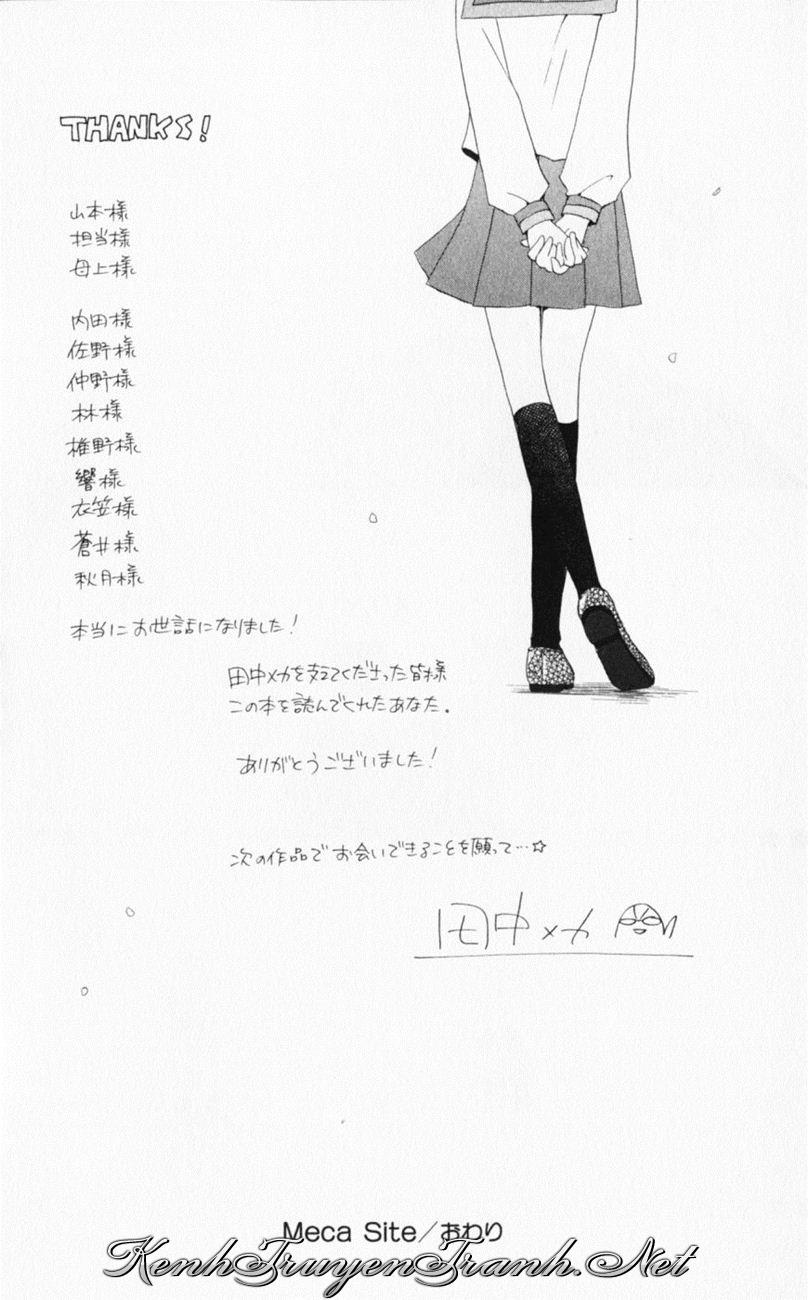 THANKS!
山本様
担当様
母上様
内田様
佐野様
仲野様
林様
椎野様
響様
衣笠様
蒼井様
秋月様
本当にお世話になりました!
田中メカを支えてくださった皆様
この本を読んでくれたあなた。
ありがとうございました!
次の作品でお会いできることを願って…☆
田中メカ
Meca Site/おわり
KenhTruyenTranh.Net